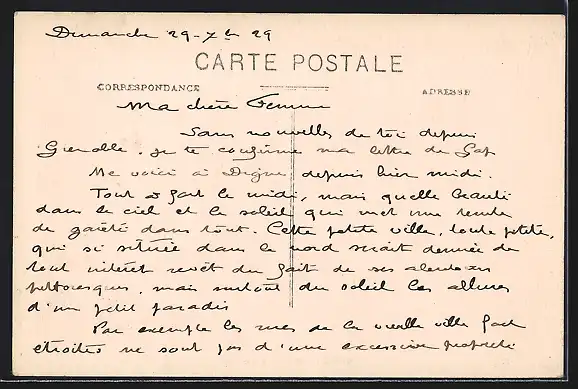 Dimanche 29-7bre 29
CARTE POSTALE
CORRESPONDANCE
ADRESSE
Ma chère Femme
Sans nouvelles de toi depuis
Grenoble. je te confirme ma lettre de Gap
Me voici à Digne depuis hier midi.
Tout à fait le midi, mais quelle beauté
dans le ciel et le soleil qui met une teinte
de gaieté dans tout. Cette petite ville, toute petite,
qui si située dans le nord serait dénuée de
tout intérêt revêt du fait de ses alentours
pittoresques, mais surtout du soleil les allures
d'un petit paradis
Par exemple les rues de la vieille ville fort
étroites ne sont pas d'une excessive propreté